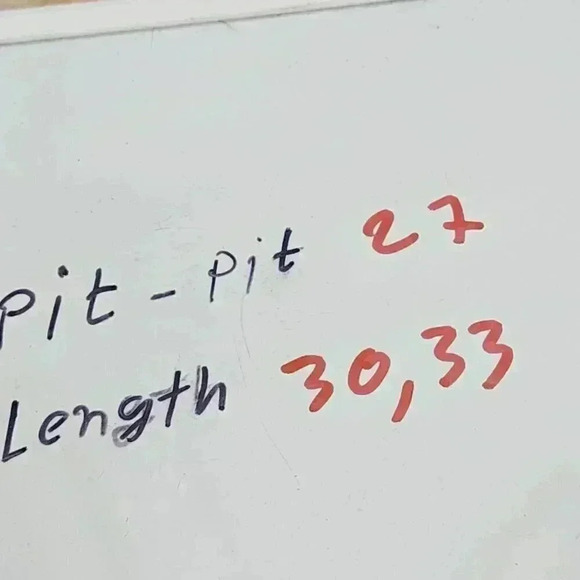 Pit - Pit 27
Length 30,33